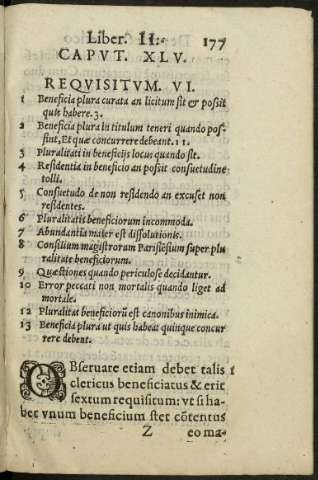 Liber. II. 177
CAPVT. XLV.
REQVISITVM. VI.
1 Beneficia plura curata an licitum sit & possit
quis habere. 3.
2 Beneficia plura in titulum teneri quando pos-
sint, Et quæ concurrere debeant. 11.
3 Pluralitati in beneficijs locus quando sit.
4 Residentia in beneficio an possit consuetudine
tolli.
5 Consuetudo de non residendo an excuset non
residentes.
6 Pluralitatis beneficiorum incommoda.
7 Abundantia mater est dissolutionis.
8 Consilium magistrorum Parisiēsium super plu
ralitate beneficiorum.
9 Quæstiones quando periculose decidantur.
10 Error peccati non mortalis quando liget ad
mortale.
12 Pluralitas beneficiorū est canonibus inimica.
13 Beneficia plura ut quis habeat quinque concur
rere debent.
OBseruare etiam debet talis 1
clericus beneficiatus & erit
sextum requisitum: vt si ha-
bet vnum beneficium stet cōtentus
Z eo ma-